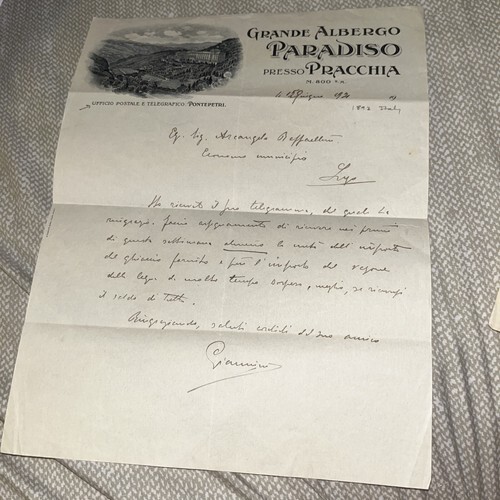 GRANDE ALBERGO
PARADISO
PRESSO PRACCHIA
M. 800 s.m.
Giugno
UFFICIO POSTALE E TELEGRAFICO: PONTEPETRI.
Eg. Sig. Arcangelo Raffaellini
Economo municipio
Ho ricevuto il suo telegramma, del quale La
ringrazio. Faccio assegnamento di ricevere nei primi
di questa settimana almeno la metà dell'importo
del ghiaccio fornito e per l'importo del
della legna di molto tempo sospeso, o meglio, se
il saldo di tutto.
Ringraziando, saluti cordiali dal suo amico
Giannino